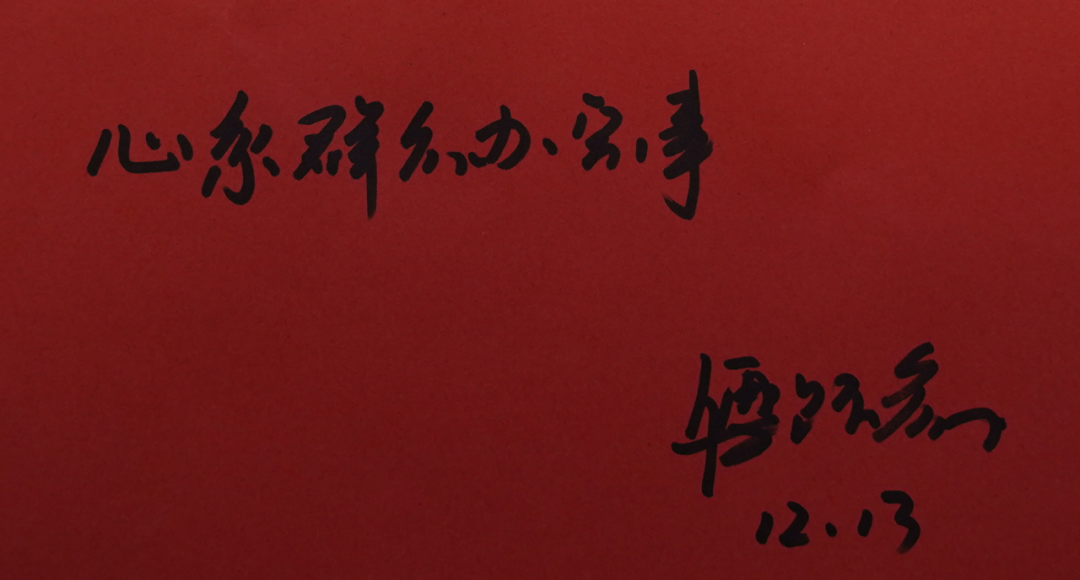 心系群众办实事
12.13